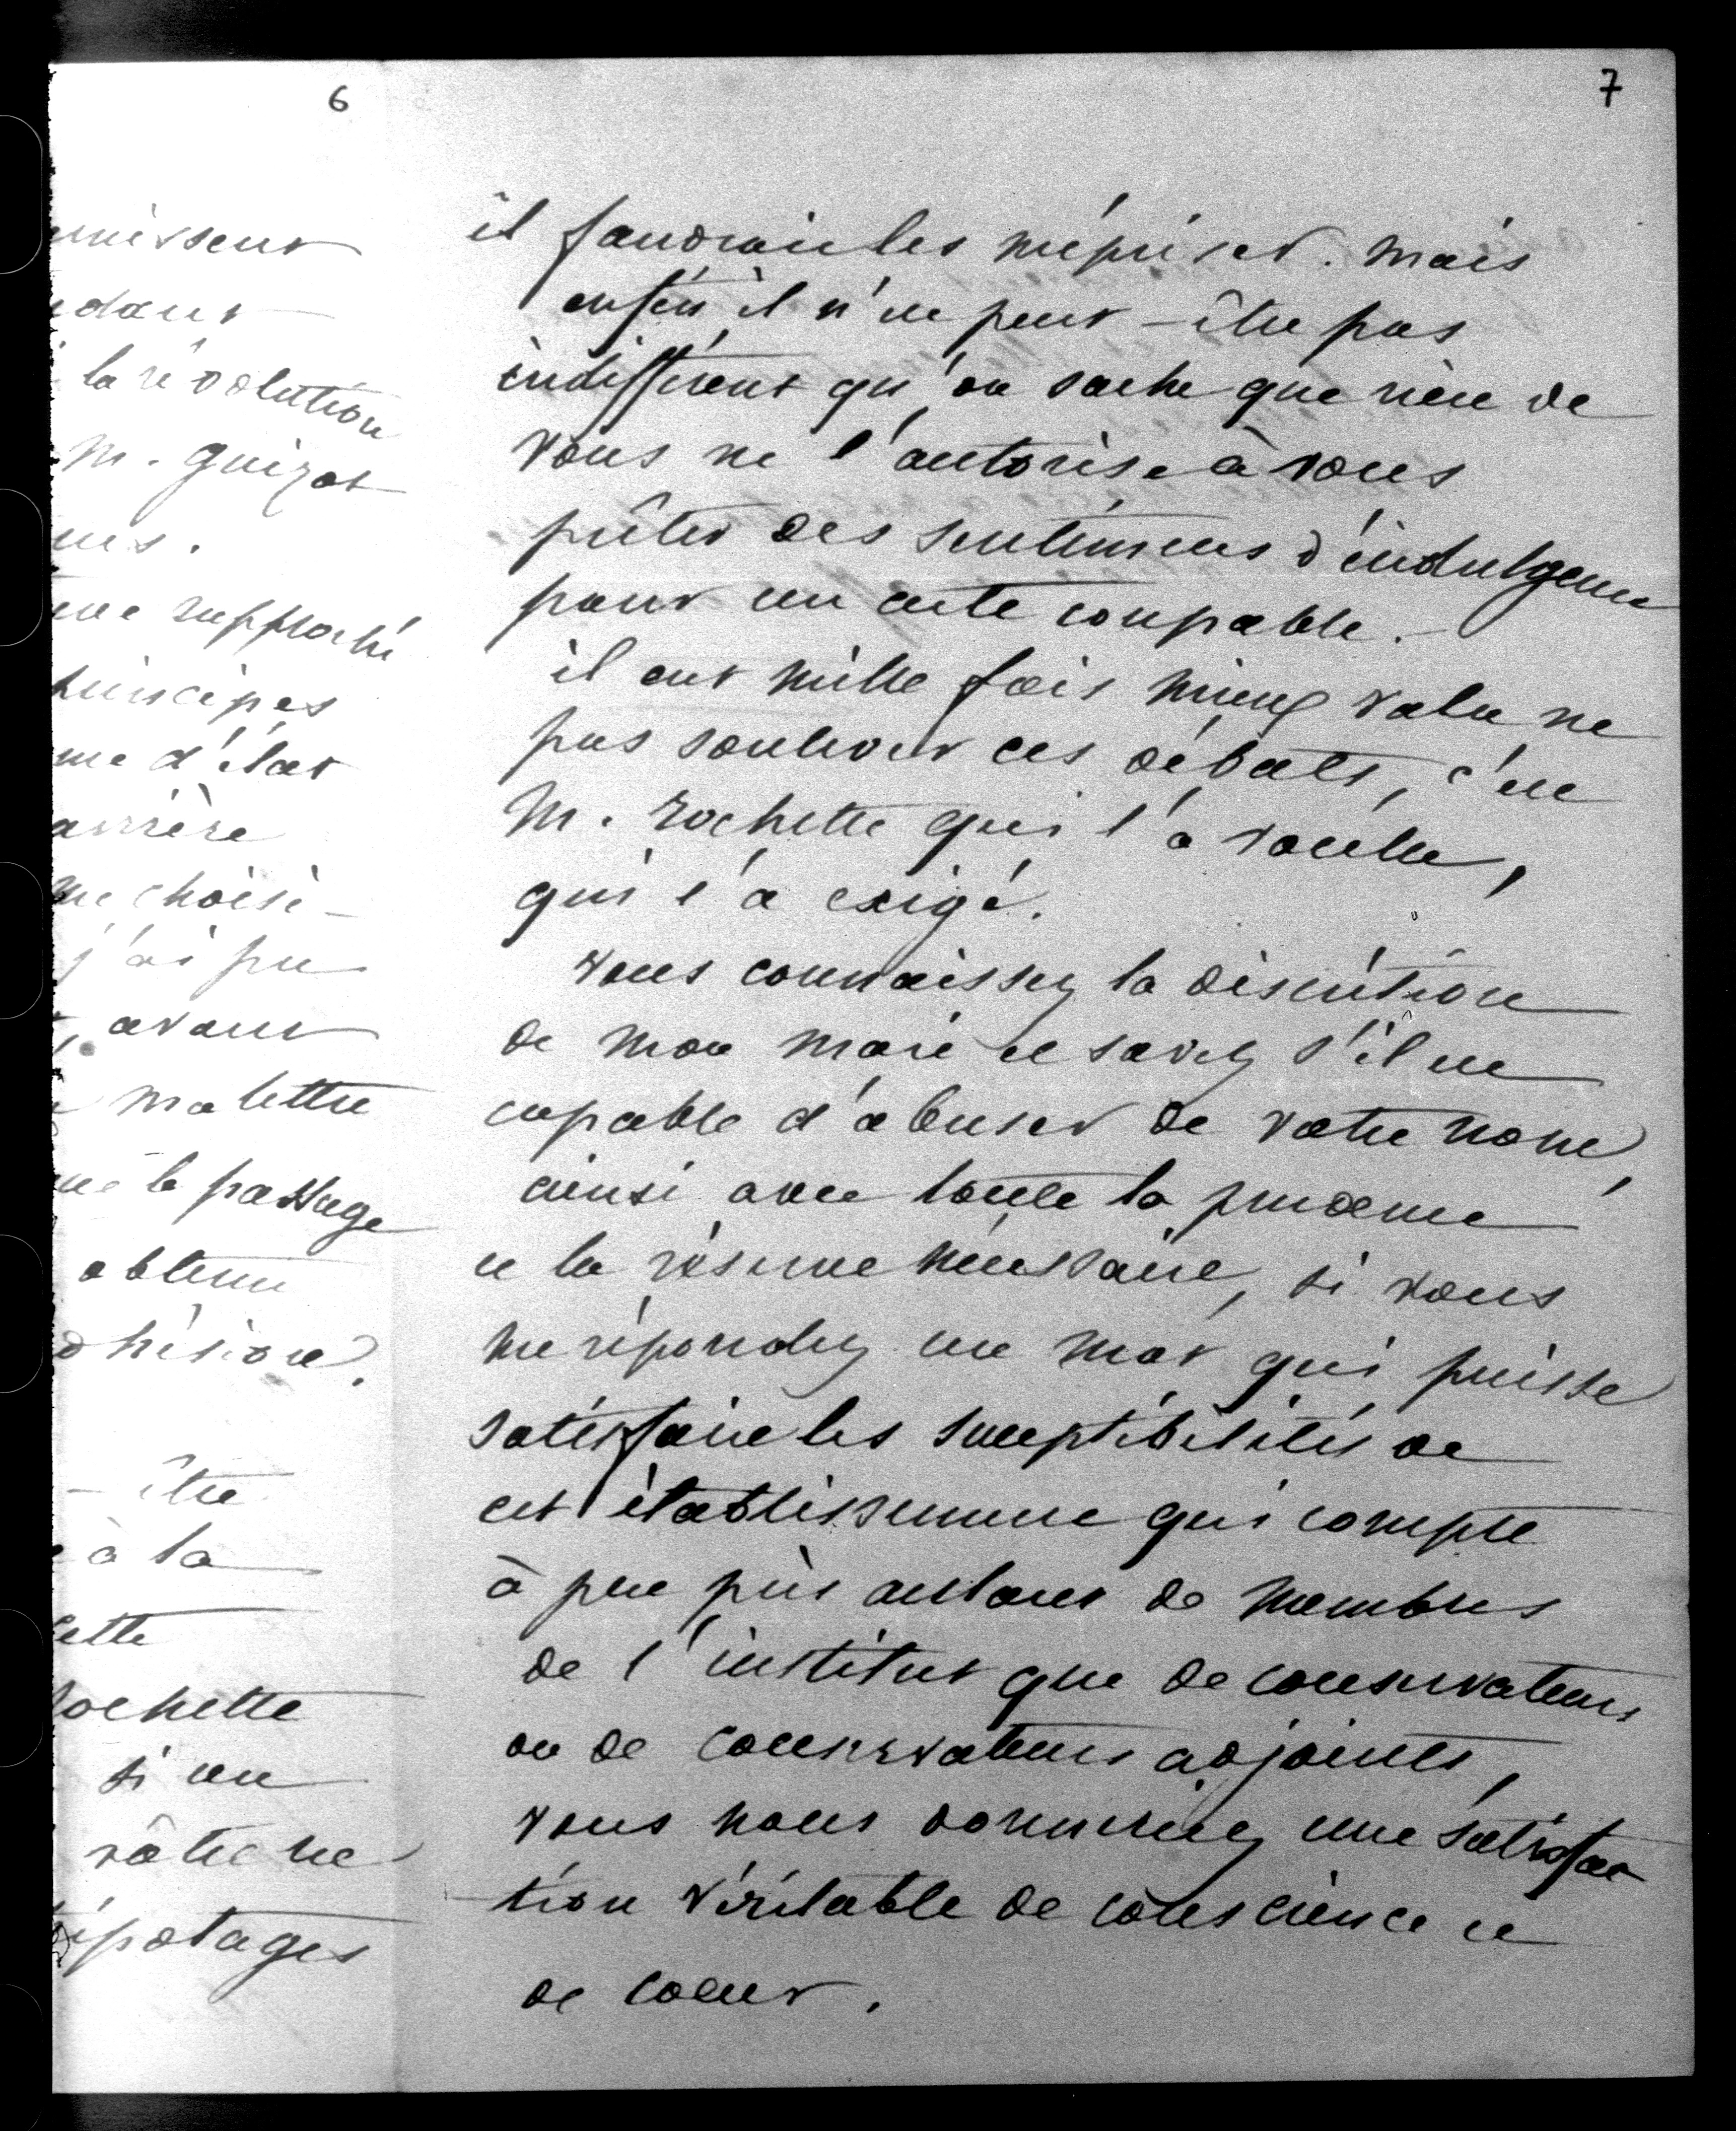 6
unissent
ndant
la révolution
M. Guizot
me rapproché
principes
me d'état
arrière
me choisi-
j'ai pu
, avant
ma lettre
le passage
obtenu
dhésion.
- être
à la
cette
Rochette
si un
vôtre ne
ripotages
7
il faudrait les mépriser. Mais
enfin il n'est peut-être pas
indifférent qu'on sache que rien de
vous ne l'autorise à vous
prêter des sentimens d'indulgence
pour un acte coupable.
il eut mille fois mieux valu ne
pas soulever ces débats, c'est
M. Rochette qui l'a voulu,
qui l'a exigé.
vous connaissez la discrétion
de mon mari et savez s'il est
capable d'abuser de votre nom,
ainsi avec toute la prudence
et la réserve nécessaire, si vous
me répondez un mot qui puisse
satisfaire les susceptibilités de
cet établissement qui compte
à peu près autant de membres
de l'institut que de conservateurs
ou de conservateurs adjoints,
vous nous donneriez une satisfac
tion véritable de conscience et
de coeur.